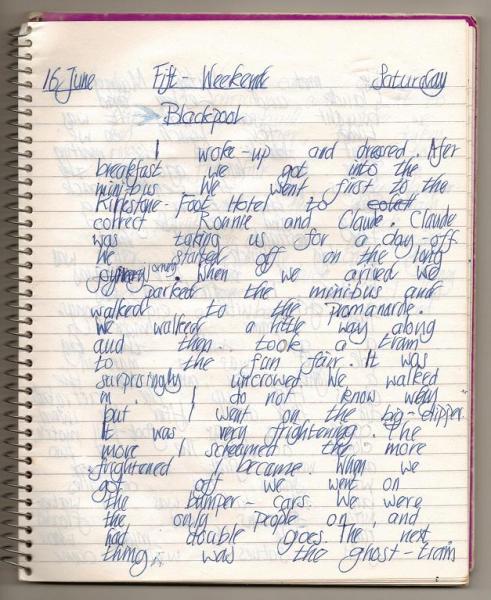 16 June Fift - Weekende Saturday
Blackpool
I woke-up and dressed. Afer
breakfast we got into the
minibus We went first to the
Kirkstone-Foot Hotel to
correct Ronnie and Claude. Claude
was taking us for a day-off
We started off on the long
journey. When we arived we
parked the minibus and
walked to the promanarde.
We walked a little way along
and then took a tram
to the fun fair. It was
surprisingly uncrowed. We walked
in. I do not know way
but I went on the big-dipper
It was very frightening. The
more I screamed the more
frightened I became. When we
got off we went on
the bumper-cars. We were
the only people on, and
had double goes. The next
thing was the ghost-train